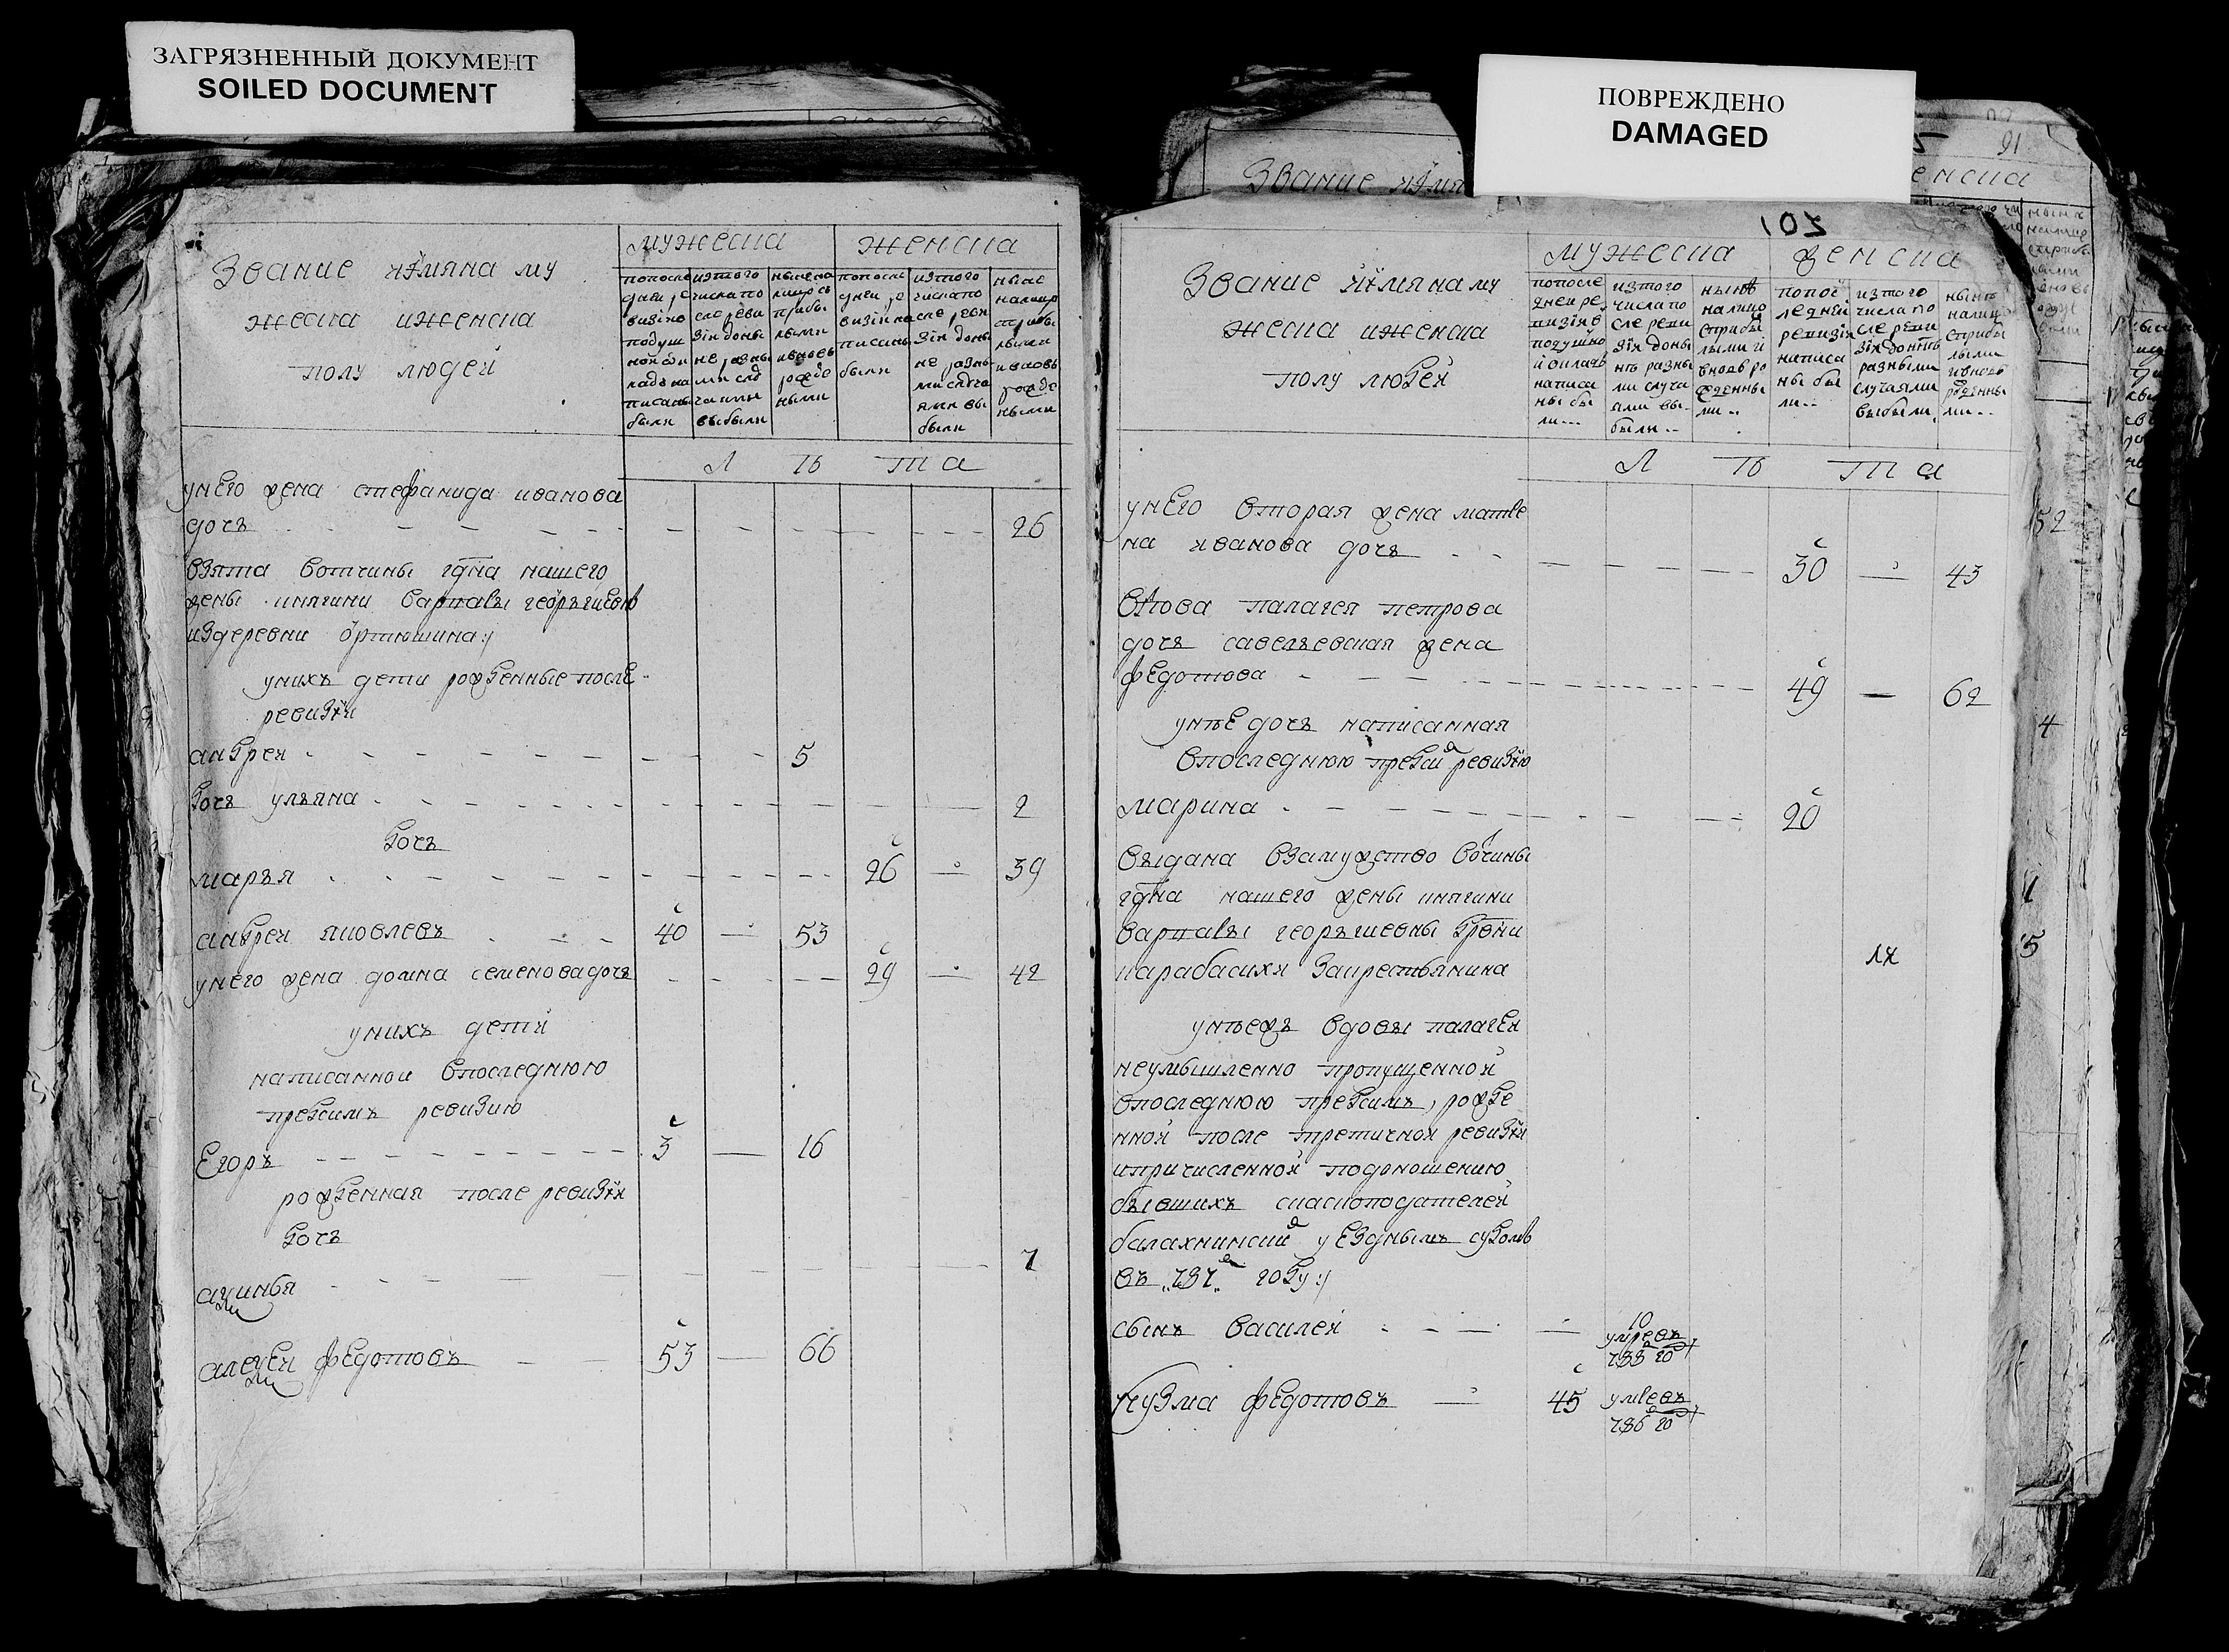 ЗАГРЯЗНЕННЫЙ ДОКУМЕНТ
SOILED DOCUMENT
ПОВРЕЖДЕНО
DAMAGED
Звание иїмяна му
жеска иженска
полу людей
мужеска
женска
попосле
дней ре
визїи
подуш
ной в ок
ладъ на
писаны
были
изтого
числа по
сле реви
зїи доны
не разны
ми слу
чаими
выбыли
ныне на
лицо съ
прибы
лыми
ивновь
рожде
ными
попосле
дней ре
визїи на
писаны
были
изтого
числа по
сле реви
зїи доны
не разны
ми случа
ями вы
были
ныне
налицо
сприбы
лыми
ивновь
рожде
ными
Л Ѣ Т А
унего жена стефанида иванова
дочь 26
взята вотчины гдна нашего
жены княгини варвары георъгиевны
издеревни ортюшина:/
унихъ дети рожденные после
ревизїи
андрей 5
дочь ульяна 2
дочь
марья 26 39
андрей яковлевъ 40 53
унего жена домна семенова дочь 29 42
унихъ дети
написанной впоследнюю
предсимъ ревизию
Егоръ 3 16
рожденная после ревизїи
дочь
акинфя 7
алексей федотовъ 53 66
107
Звание иїмяна му
жеска иженска
полу людей
мужеска
женска
попосле
дней ре
визїи в
подушно
й окладъ
написа
ны бы
ли
изтого
числа по
сле реви
зїи доны
нѣ разны
ми случа
ями вы
были
нынѣ
налицо
сприбы
лыми и
вновь ро
жденны
ми
попос
ледней
ревизїи
написа
ны бы
ли
изтого
числа по
сле реви
зїи донынѣ
разными
случаями
выбыли
нынѣ
налицо
сприбы
лыми
ивновь
рожденны
ми
Л Ѣ Т А
унего вторая жена матре
на иванова дочь 30 43
вдова палагея петрова
дочь савельевская жена
федотова 49 62
унѣе дочь написанная
впоследнюю предсию ревизїю
марина 20
выдана взамужство вотчины
гдна нашего жены княгини
варвары георьгиевны
карабасихи закрестьянина
унѣежъ вдовы палагеи
неумышленно пропущенной
впоследнюю предсимъ, рожде
нной после третичной ревизїи
ипричисленной подоношению
бывшихъ скаскоподателей
балахнинский уезднымъ судомъ
въ 787 году:/
сынъ василей 10 умре въ
788 го
кузма федотовъ 45 умре въ
786 го